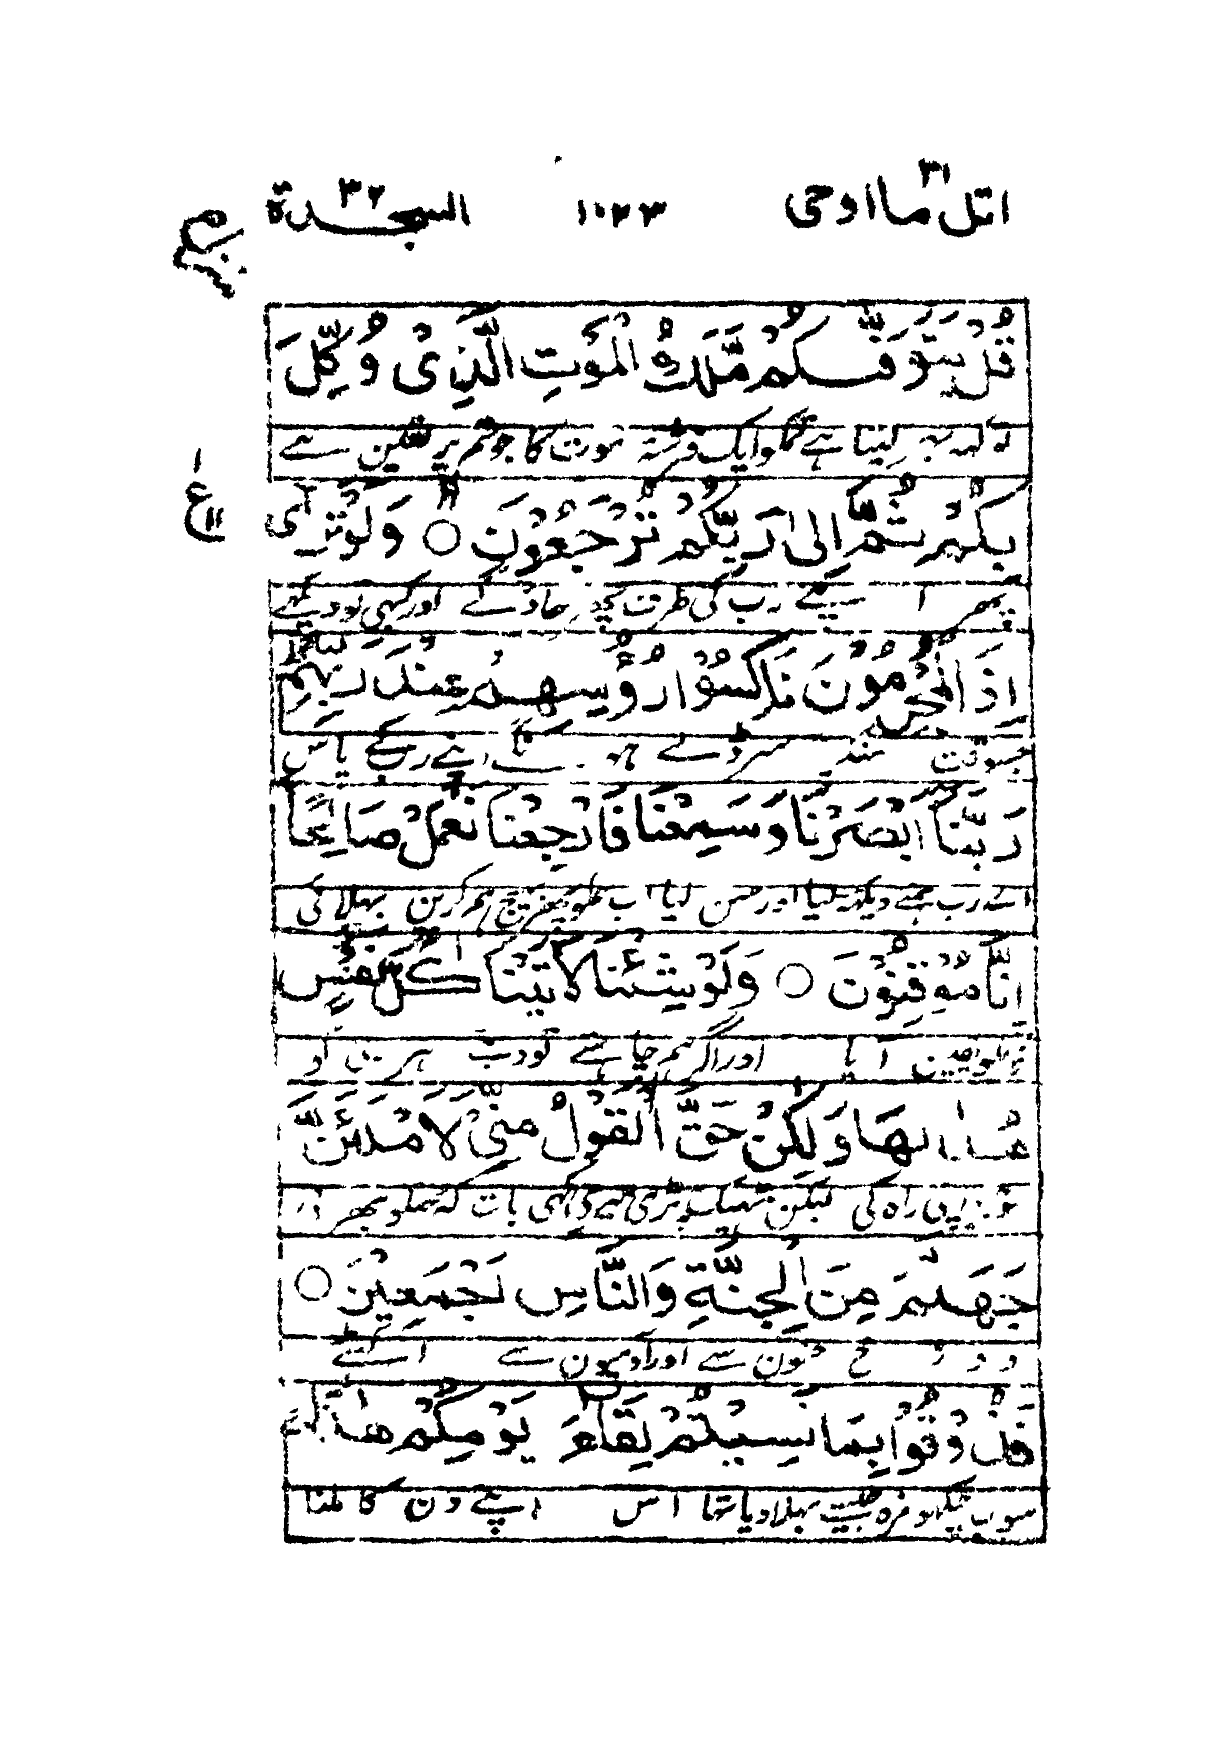 اتل ما اوحی ٢١ ١٠٢٣ السجدة ٣٢
قُلْ يَتَوَفّٰىكُمْ مَّلَكُ الْمَوْتِ الَّذِىْ وُكِّلَ
لیتا ہے تمکو ایک فرشتہ موت کا جو تم پر تعین ہے
ع ١١
بِكُمْ ثُمَّ اِلٰى رَبِّكُمْ تُرْجَعُوْنَ ○ وَلَوْ تَرٰٓى
پھر اپنے رب کی طرف جاؤگے اور کبھی تو دیکھے
اِذِ الْمُجْرِمُوْنَ نَاكِسُوْا رُءُوْسِهِمْ عِنْدَ رَبِّهِمْ
جسوقت سر ڈالے اپنے رب کے پاس
رَبَّنَآ اَبْصَرْنَا وَسَمِعْنَا فَارْجِعْنَا نَعْمَلْ صَالِحًا
اے رب ہمنے دیکھ لیا اور سن لیا اب ہمکو پھر بھیج ہم کرین بھلائی
اِنَّا مُوْقِنُوْنَ ○ وَلَوْ شِئْنَا لَاٰتَيْنَا كُلَّ نَفْسٍ
یقین آیا اور اگر ہم چاہتے تو دیتے ہر
هُدٰىهَا وَلٰكِنْ حَقَّ الْقَوْلُ مِنِّىْ لَاَمْلَئَنَّ
راہ کی لیکن ٹھیک پڑی میری کہی بات کہ مجکو بھرنا
جَهَنَّمَ مِنَ الْجِنَّةِ وَالنَّاسِ اَجْمَعِيْنَ ○
دوزخ جنون سے اور آدمیون سے اکٹھے
فَذُوْقُوْا بِمَا نَسِيْتُمْ لِقَآءَ يَوْمِكُمْ هٰذَا
سو اب چکھو مزہ جیسے بھلا دیا تھا اس اپنے دن کا ملنا